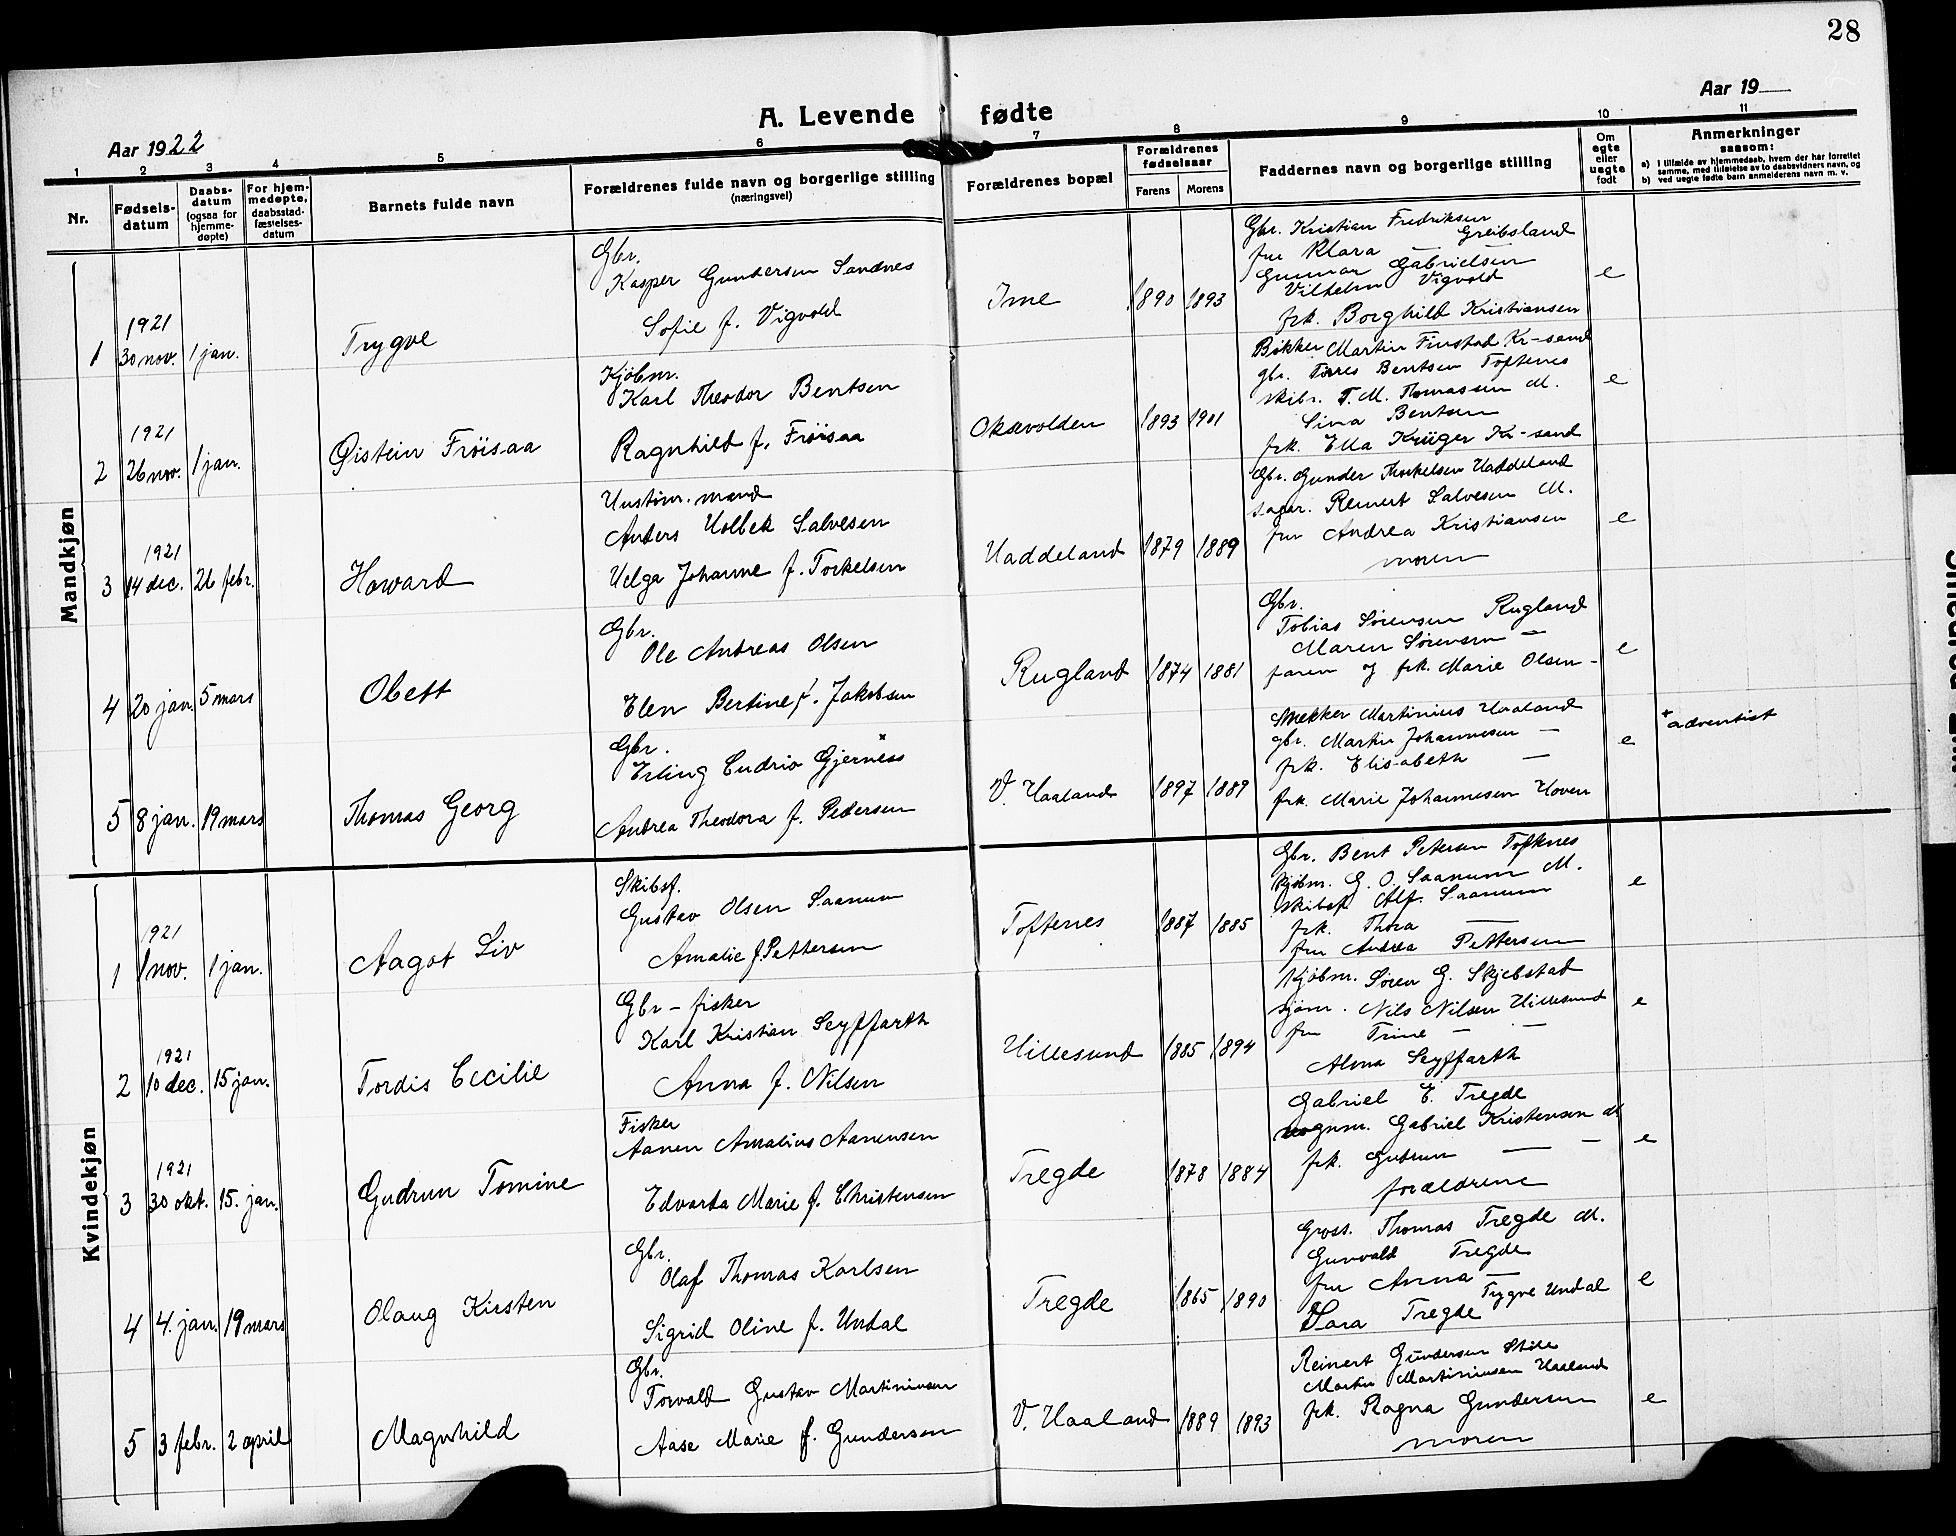 28
Aar 1922
A. Levende fødte
Aar 19
1 2 3 4 5 6 7 8 9 10 11
Nr.
Fødsels-
datum
Daabs-
datum
(ogsaa for
hjemme-
døpte)
For hjem-
medøpte,
daabsstad-
fæstelses-
datum
Barnets fulde navn
Forældrenes fulde navn og borgerlige stilling
(næringsvei)
Forældrenes bopæl
Forældrenes
fødselsaar
Farens
Morens
Faddernes navn og borgerlige stilling
Om
egte
eller
uegte
født
Anmerkninger
saasom:
a) I tilfælde av hjemmedaab, hvem der har forrettet
samme, med tilføielse av to daabsvidners navn, og
b) ved uegte fødte barn anmelderens navn m. v.
Mandkjøn
1
1921
30 nov.
1 jan.
Trygve
Gbr.
Kasper Gundersen Sandnes
Sofie f. Vigvold
Ime
1890
1893
Gbr. Kristian Fredriksen
Greibsland
fru Klara — —
Gunnar Gabrielsen
Vilhelm Vigvold
frk. Borghild Kristiansen
e
2
1921
26 nov.
1 jan.
Øistein Frøisaa
Kjøbm.
Karl Theodor Bentsen
Ragnhild f. Frøisaa
Oksevolden
1893
1901
Bøkker Martin Finstad Kr-sand
gbr. Tørres Bentsen Toftenes
skibr. T. M. Thomassen M.
Sina Bentsen
frk. Ella Krüger Kr-sand
e
3
1921
14 dec.
26 febr.
Howard
Hustøm. mand
Anders Holbek Salvesen
Helga Johanne f. Torkelsen
Haddeland
1879
1889
Gbr. Gunder Thorkelsen Haddeland
sagar. Reinert Salvesen M.
fru Andrea Kristiansen
moren
e
4
20 jan.
5 mars
Obett
Gbr.
Ole Andreas Olsen
Elen Bertine f. Jakobsen
Rugland
1874
1881
Gbr.
Tobias Sørensen Rugland
Maren Sørensen —
faren og frk. Marie Olsen -
e
5
8 jan.
19 mars
Thomas Georg
Gbr.
Erling Cudrio Gjerness *
Andrea Theodora f. Pedersen
V. Haaland
1897
1889
Snekker Martinius Haaland
gbr. Martin Johannesen —
frk. Elisabeth —
frk. Marie Johannesen Hoven
e
* adventist
Kvindekjøn
1
1921
1 nov.
1 jan.
Aagot Liv
Skibsf.
Gustav Olsen Saanum
Amalie f. Pettersen
Toftenes
1887
1885
Gbr. Bent Petersen Toftenes
kjøbm. G. O. Saanum M.
skibsf. Alf. Saanum
frk. Thora —
fru Andrea Pettersen
e
2
1921
10 dec.
15 jan.
Tordis Cecilie
Gbr - fisker
Karl Kristian Seyffarth
Anna f. Nilsen
Hillesund
1885
1894
Kjøbm. Søren G. Skjebstad
sjøm. Nils Nilsen Hillesund
fru Trine — —
Alma Seyffarth
e
3
1921
30 okt.
15. jan.
Gudrun Tomine
Fisker
Aanen Amalius Aanensen
Edvarda Marie f. Christensen
Tregde
1878
1884
Gabriel E. Tregde
vognm. Gabriel Kristensen M
frk. Gudrun — —
forældrene
e
4
4. jan.
19 mars
Olaug Kirsten
Gbr.
Olaf Thomas Karlsen
Sigrid Oline f. Undal
Tregde
1865
1890
Gross. Thomas Tregde M.
Gunvald Tregde
fru Anna —
Sara Tregde Trygve Undal
e
5
3 febr.
2 april
Magnhild
Gbr.
Torvald Gustav Martiniusen
Aase Marie f. Gundersen
V. Haaland
1889
1893
Reinert Gundersen
Martin Martiniusen Haaland
frk. Ragna Gundersen
moren
e